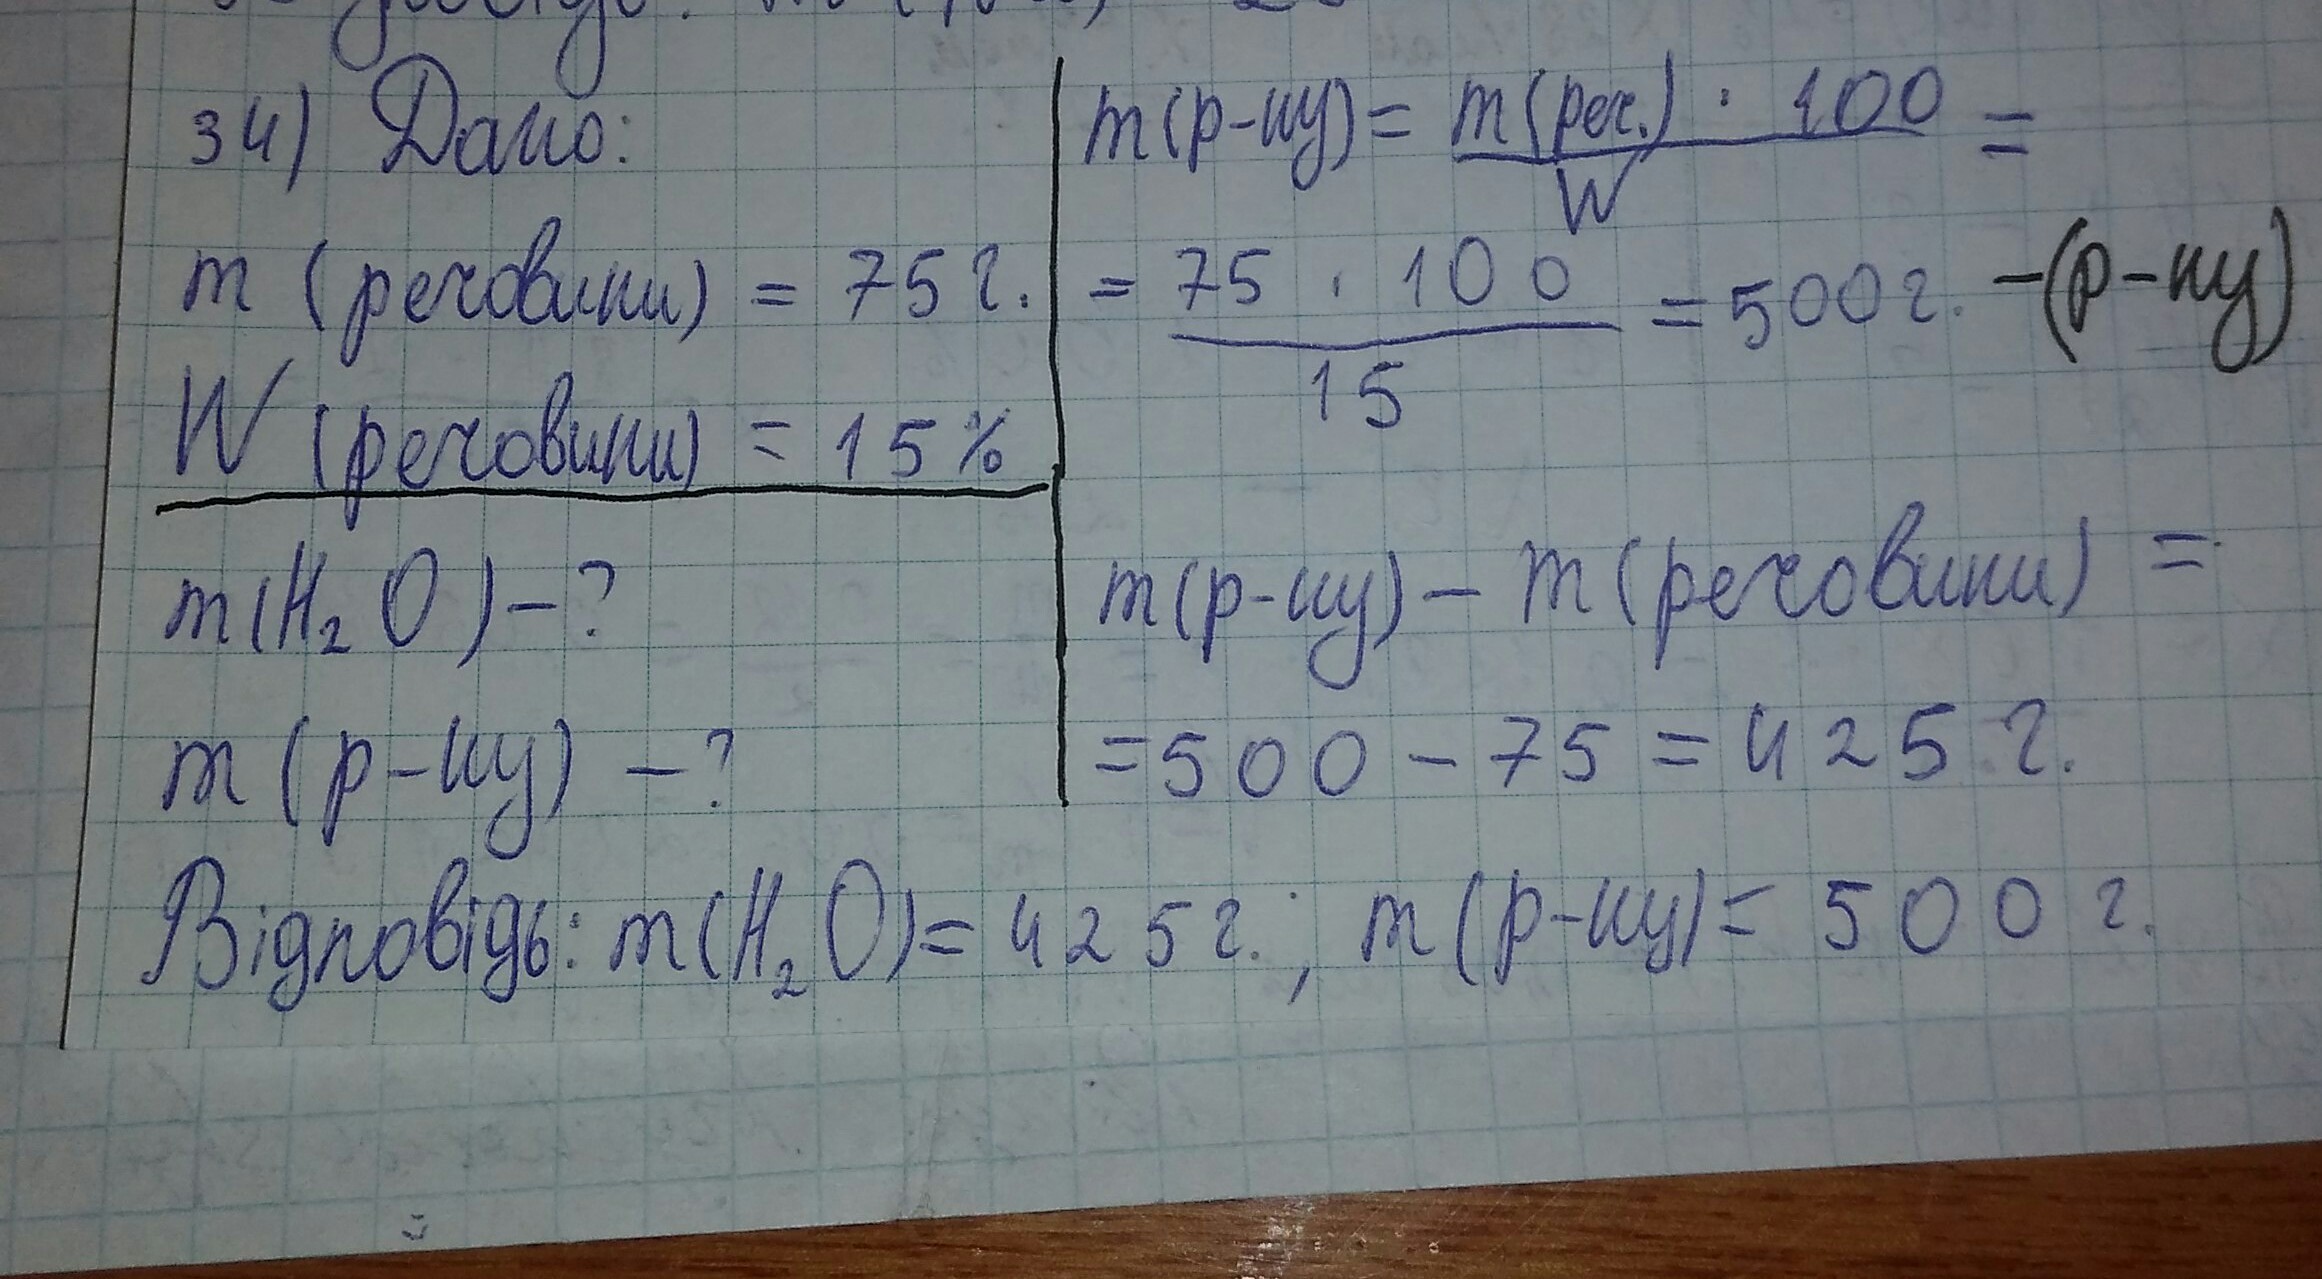 34) Дано:
m (речовини) = 75 г.
W (речовини) = 15 %
m(H₂O) – ?
m (р-ну) – ?
m(р-ну) = m(реч.) · 100 / W =
= 75 · 100 / 15 = 500 г. – (р-ну)
m(р-ну) – m(речовини) =
= 500 – 75 = 425 г.
Відповідь: m(H₂O) = 425 г.; m(р-ну) = 500 г.